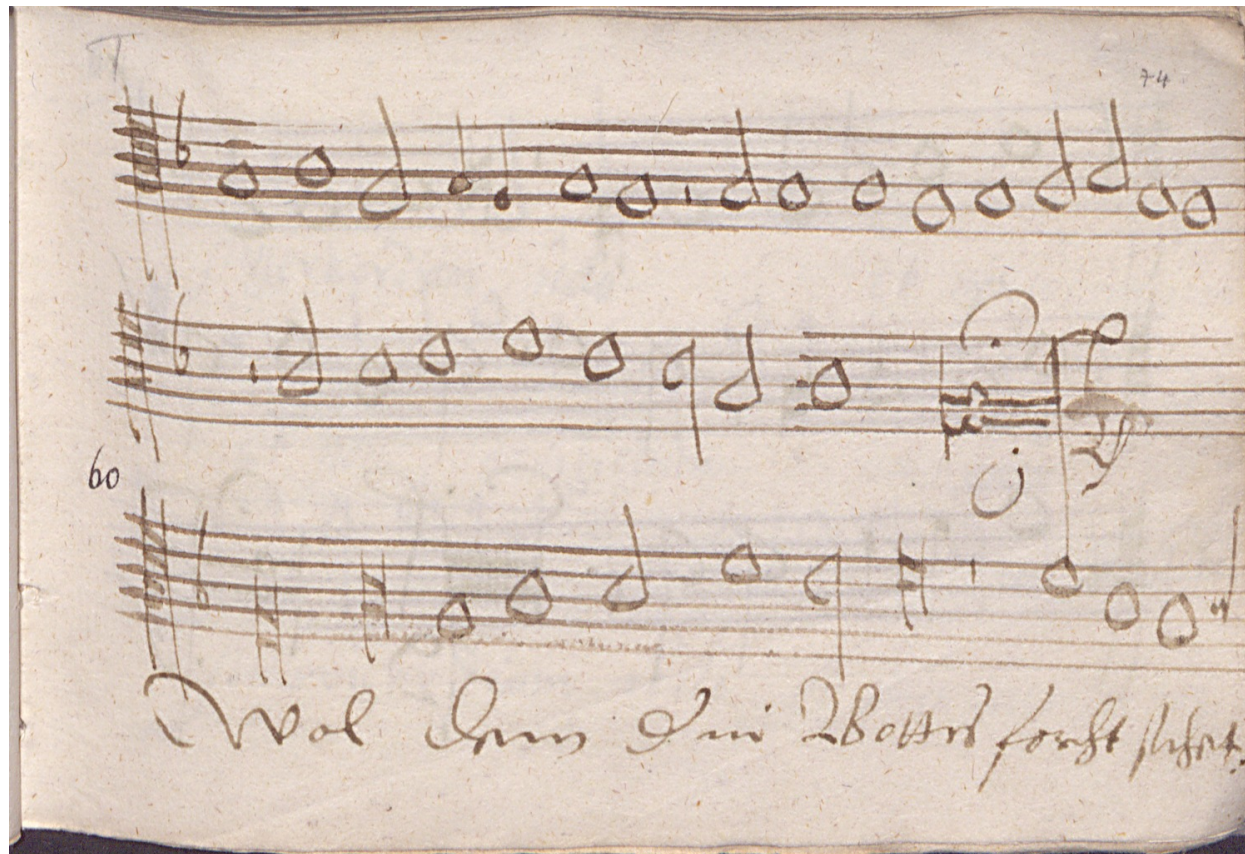 T
74
60
Wol dem Der in Gottes forcht stehet.